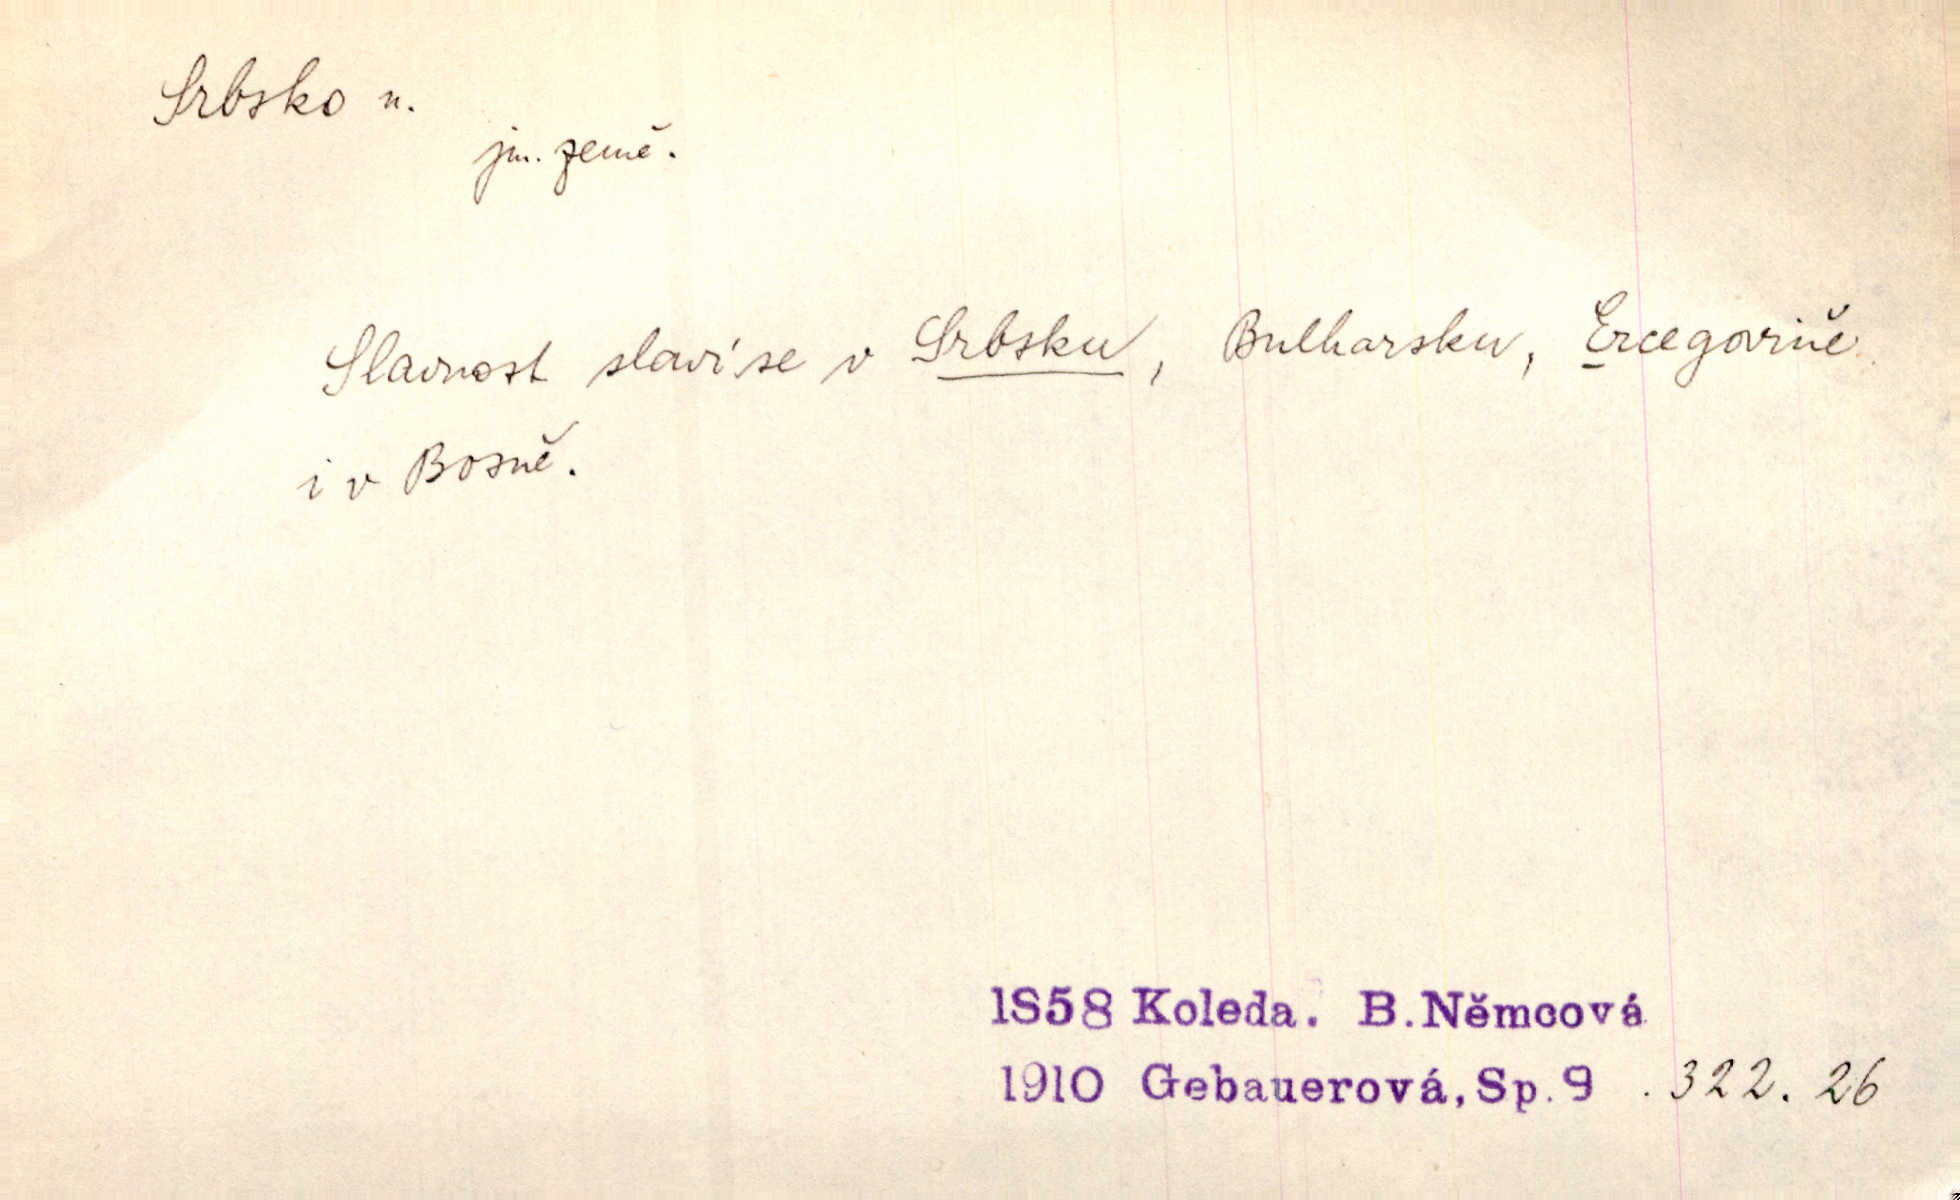 Srbsko n.
jm. země.
Slavnost slaví se v Srbsku, Bulharsku, Ercegovině
i v Bosně.
1858 Koleda. B.Němcová
1910 Gebauerová,Sp.9 .322.26